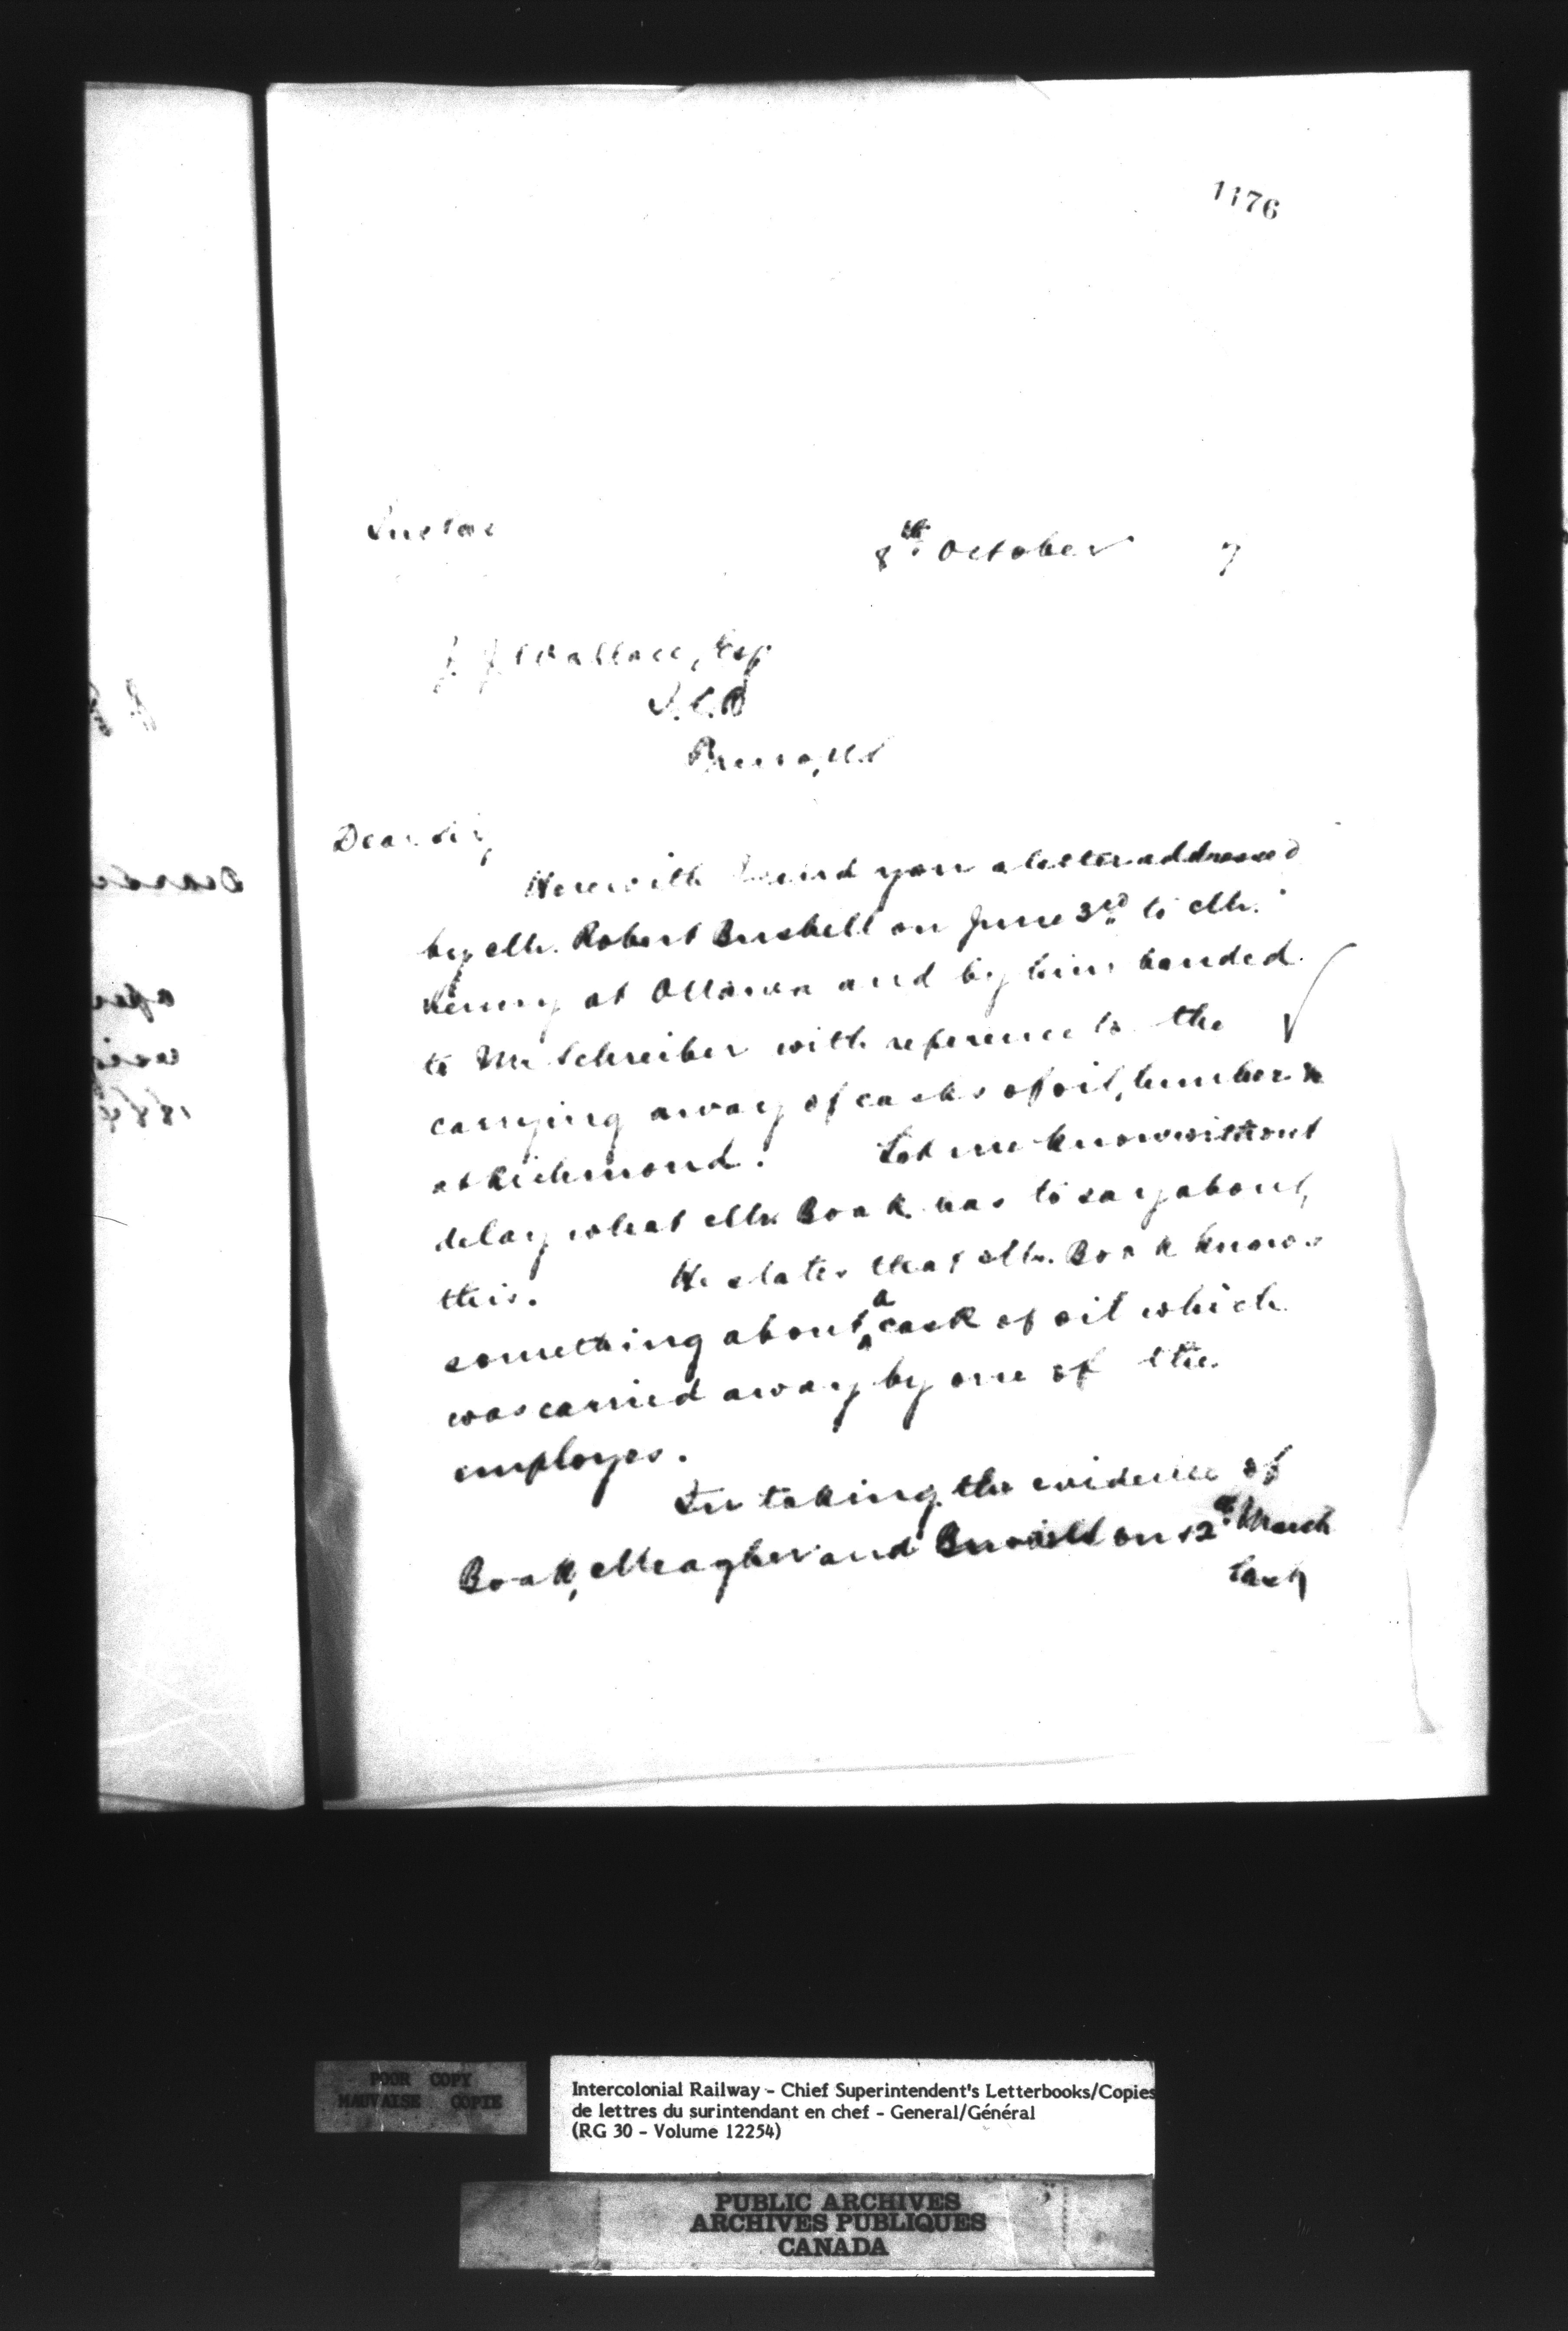 1176
8th October 7
J. J. Wallace, Esq
I.C.R
Truro, N.S
Dear Sir,
Herewith I send you a letter addressed
by Mr. Robert Bushell on June 3rd to Mr.
Kenny at Ottawa and by him handed
to Mr Schreiber with reference to the
carrying away of casks of oil, lumber &
at Richmond. Let me know without
delay what Mr. Boak has to say about
this. He states that Mr. Boak knows
something about a cask of oil which
was carried away by one of the
employes.
In taking the evidence of
Boak, Meagher and on 12th March
last
POOR COPY
MAUVAISE COPIE
Intercolonial Railway - Chief Superintendent's Letterbooks/Copies
de lettres du surintendant en chef - General/Général
(RG 30 - Volume 12254)
PUBLIC ARCHIVES
ARCHIVES PUBLIQUES
CANADA